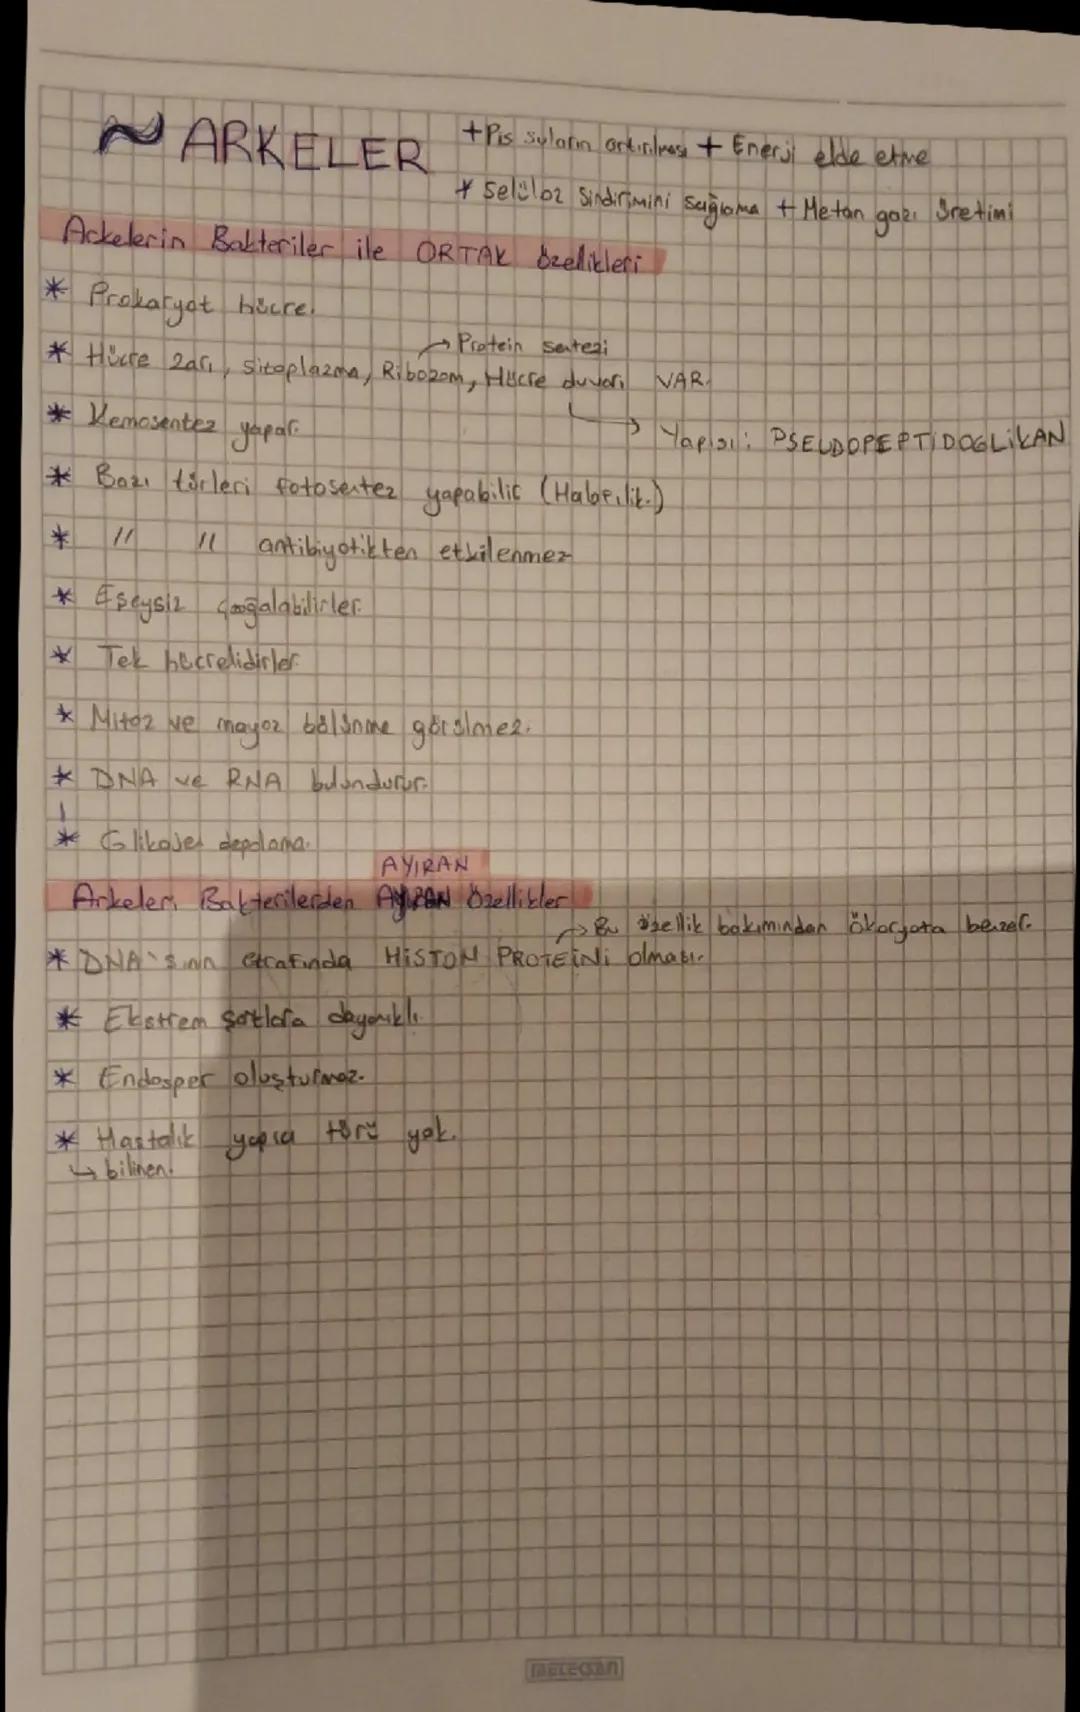 ~ ARKELER
+Pis suların arıtılması + Enerji elde etme
* Selüloz Sindirimini Sağlama + Metan gazı üretimi
Arkelerin Bakteriler ile ORTAK özellikleri
* Prokaryot hücre.
→ Protein sentezi
* Hücre zarı, sitoplazma, Ribozom, Hücre duvarı VAR.
→ Yapısı: PSEUDOPEPTİDOGLİKAN
* Kemosentez yapar.
* Bazı türleri fotosentez yapabilir
* // // antibiyotikten etkilenmez
* Eşeysiz çoğalabilirler.
* Tek hücrelidirler.
* Mitoz ve mayoz bölünme görülmez.
* DNA ve RNA bulundurur.
* Glikojen depolama.
AYIRAN
Arkeleri Bakterilerden AYIRAN Özellikler
→ Bu özellik bakımından ökaryota benzer.
* DNA'sının etrafında HİSTON PROTEİNİ olması.
* Ekstrem şartlara dayanıklı
* Endospor oluşturmaz.
* Hastalık yapıcı türü yok.
↳ bilinen.